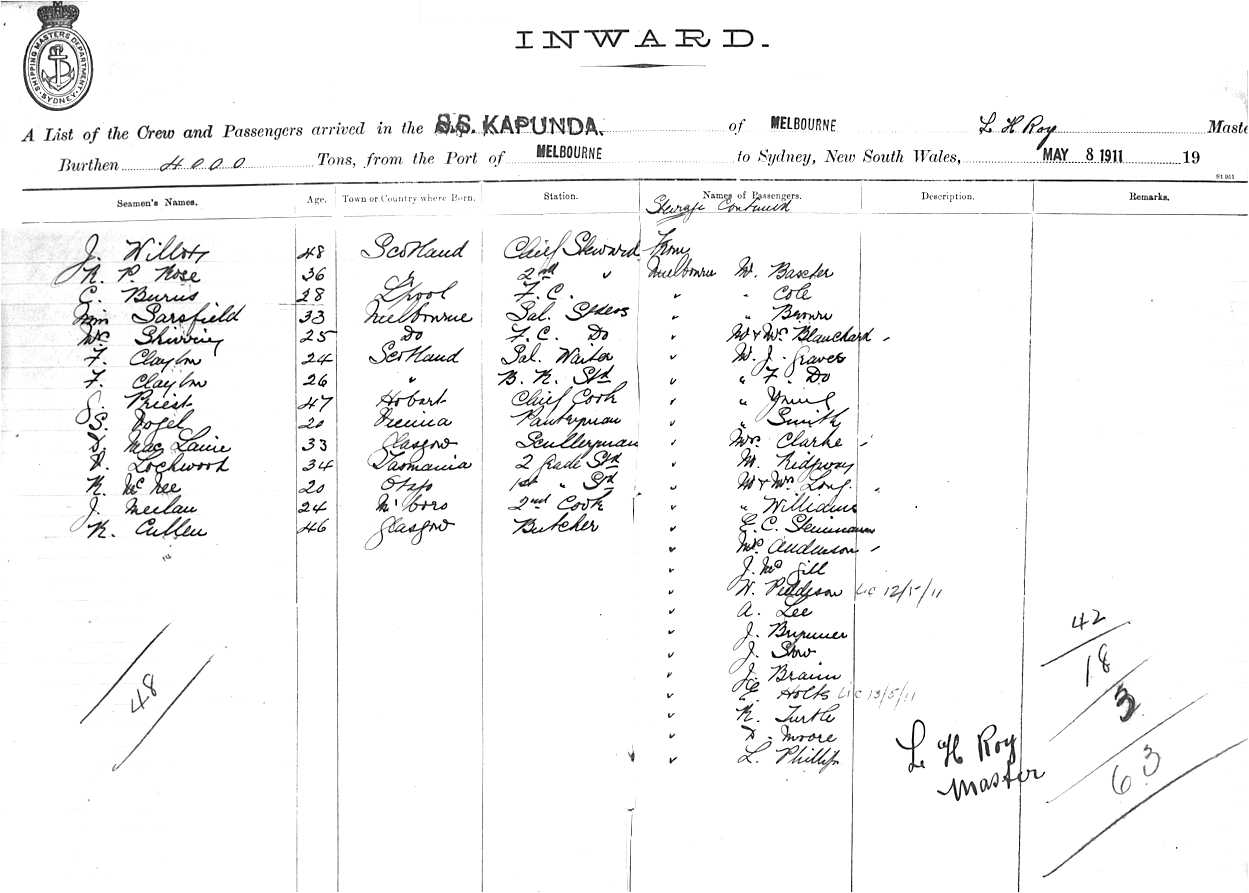 SHIPPING MASTERS DEPARTMENT
SYDNEY
INWARD.
A List of the Crew and Passengers arrived in the S.S. KAPUNDA. of MELBOURNE L H Roy Maste
Burthen 4000 Tons, from the Port of MELBOURNE to Sydney, New South Wales, MAY 8 1911 19
Seamen's Names. Age. Town or Country where Born. Station. Names of Passengers. Description. Remarks.
Steerage Continued
J. 48 Scotland Chief Steward From
R. P. Rose 36 " 2nd " Melbourne Mr.
C. Burns 28 L'pool F. C. " " Cole
Sarsfield 33 Melbourne Sal. Stdess " " Brown
Mrs 25 Do F. C. Do " Mr & Mrs Blanchard
F. Clayton 24 Scotland Sal. Waiter " Mr. J. Graves
F. Clayton 26 " B. R. Std " " F. Do
Priest 47 Hobart Chief Cook " " Young
S. Vogel 20 Vienna Pantryman " " Smith
D. Mac Laine 33 Glasgow Sculleryman " Mrs. Clarke
Lockwood 34 Tasmania 2 Grade Std " Mr. Ridgway
R. McNee 20 1st " Std " Mr & Mrs Long
J. Meilau 24 M'boro 2nd Cook " " Williams
R. Cullen 46 Glasgow Butcher " E. C.
" Mrs. Anderson
" J. McGill
" W. Piddison Lic 12/5/11
" A. Lee
" J.
" J. Snow
" J. Braim
" E. Holts Lic 13/5/11
" R. Turtle
" D. Moore
" L. Phillips
48
42
18
3
63
L H Roy
Master